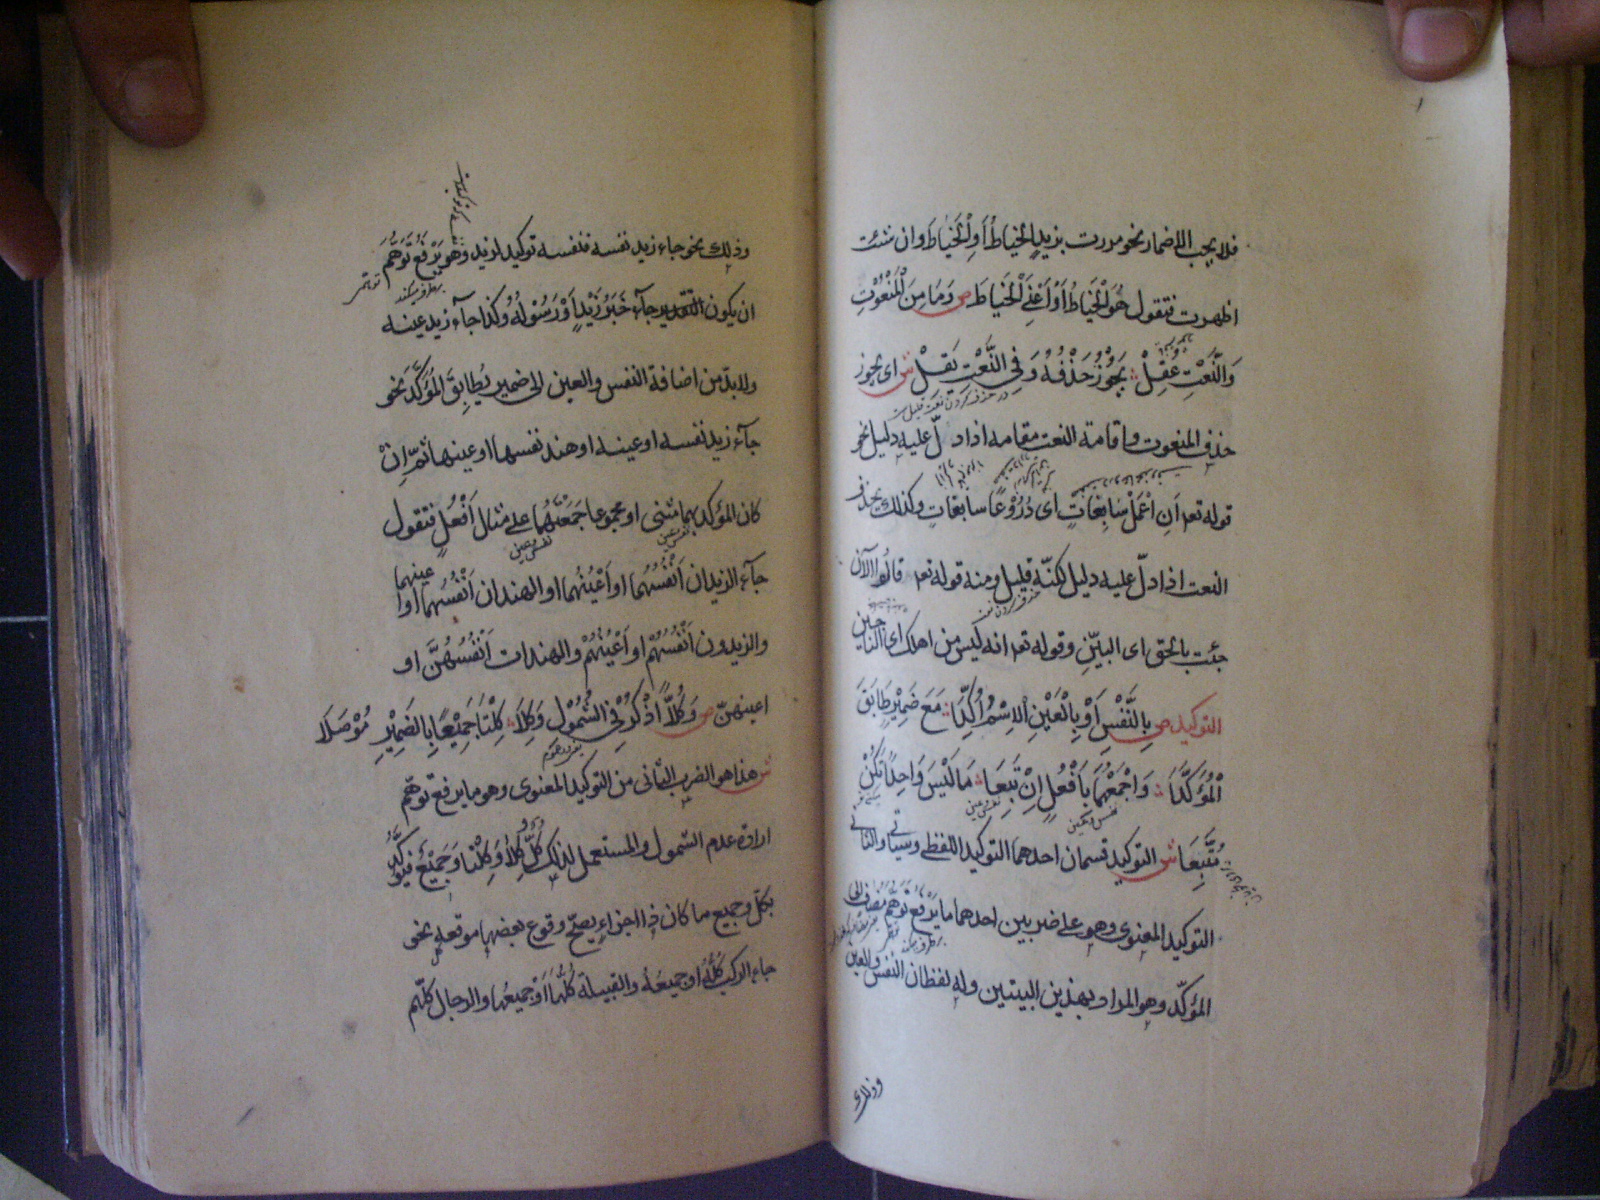 فلا يجب الاضمار نحو مررت بزيدٍ الخياطُ أوِ الْخَياطَ وان شئت
اظهرت فتقول هُوَ الْخياطُ أَوْ أَعْنِي الْخَياطَ ص وَمَا مِنَ الْمَنْعُوْتِ
وَالنَّعْتِ عُقِلْ يَجُوْزُ حَذْفُهُ وَفِي النَّعْتِ يَقِلْ ش اى يجوز
حذف المنعوت واقامة النعت مقامه اذا دلّ عليه دليل نحو
قوله تعه اَنِ اعْمَلْ سَابِغَاتٍ أى دُرُوْعًا سابغات وكذلك يحذف
النعت اذا دلّ عليه دليل لكنّه قليل ومنه قوله تعه قالُوا الآن
جئت بالحق اى البيّن وقوله تعه انه ليس من اهلك اى الناجين
التوكيد ص بِالنَّفْسِ اَوْ بِالْعَيْنِ اَلاِسْمُ اُكِّدَا مَعَ ضَمِيْرٍ طَابَقَ
الْمُؤَكَّدَا وَاجْمَعْهُمَا بِأَفْعُلٍ اِنْ تَبِعَا مَا لَيْسَ وَاحِدًا تَكُنْ
مُتَّبِعَا ش التوكيد قسمان احدهما التوكيد اللفظى وسيأتى والثانى
التوكيد المعنوى وهو على ضربين احدهما ما يَرْفَعُ تَوَهُّمَ مُضَافٍ الى
المؤكّد وهو المراد بهذين البيتين وله لفظان النفس والعين
وذلك
وذلك نحو جاء زيد نفسه فنفسه توكيد لزيد وَهُوَ يَرْفَعُ تَوَهُّمَ
ان يكون التقدير جآء خَبَرُ زَيْدٍ اَوْ رَسُوْلُهُ وكذا جآء زيد عينه
ولا بدّ من اضافة النفس والعين الى ضمير يُطابِقَ المُؤَكَّدَ نحو
جآء زيد نفسه او عينه او هند نفسها او عينها ثمّ اِنْ
كان المؤكد بهما مثنى او مجموعا جَمَعْتَهُما على مثال اَفْعُلٍ فتقول
جآء الزيدان اَنْفُسُهُما او اَعْيُنُهُما او الهندان اَنْفُسُهما او ا عينهما
والزيدون اَنْفُسُهُمْ او اَعْيُنُهُمْ والهندات اَنْفُسُهُنَّ او
اعينهنّ ص وَكُلاًّ اذْكُرْ فِي الشُّمُوْلِ وَكِلاَ كِلْتَا جَمِيْعًا بِالضَمِيْرِ مُوْصَلَا
ش هذا هو الضرب الثانى من التوكيد المعنوى وهو ما يرفع توهّم
ارادة عدم الشمول والمستعمل لذلك كُلٌّ وَكِلاَ وَكِلْتا وَجَمِيْعٌ فَيُؤَكَّدُ
بكلّ وجميع ما كان ذا اجزاءٍ يصحّ وقوع بعضها موقعه نحو
جاء الركب كُلُّهُ او جميعُهُ والقبيلة كُلُّها اَوْ جميعُها والرجال كلّهم